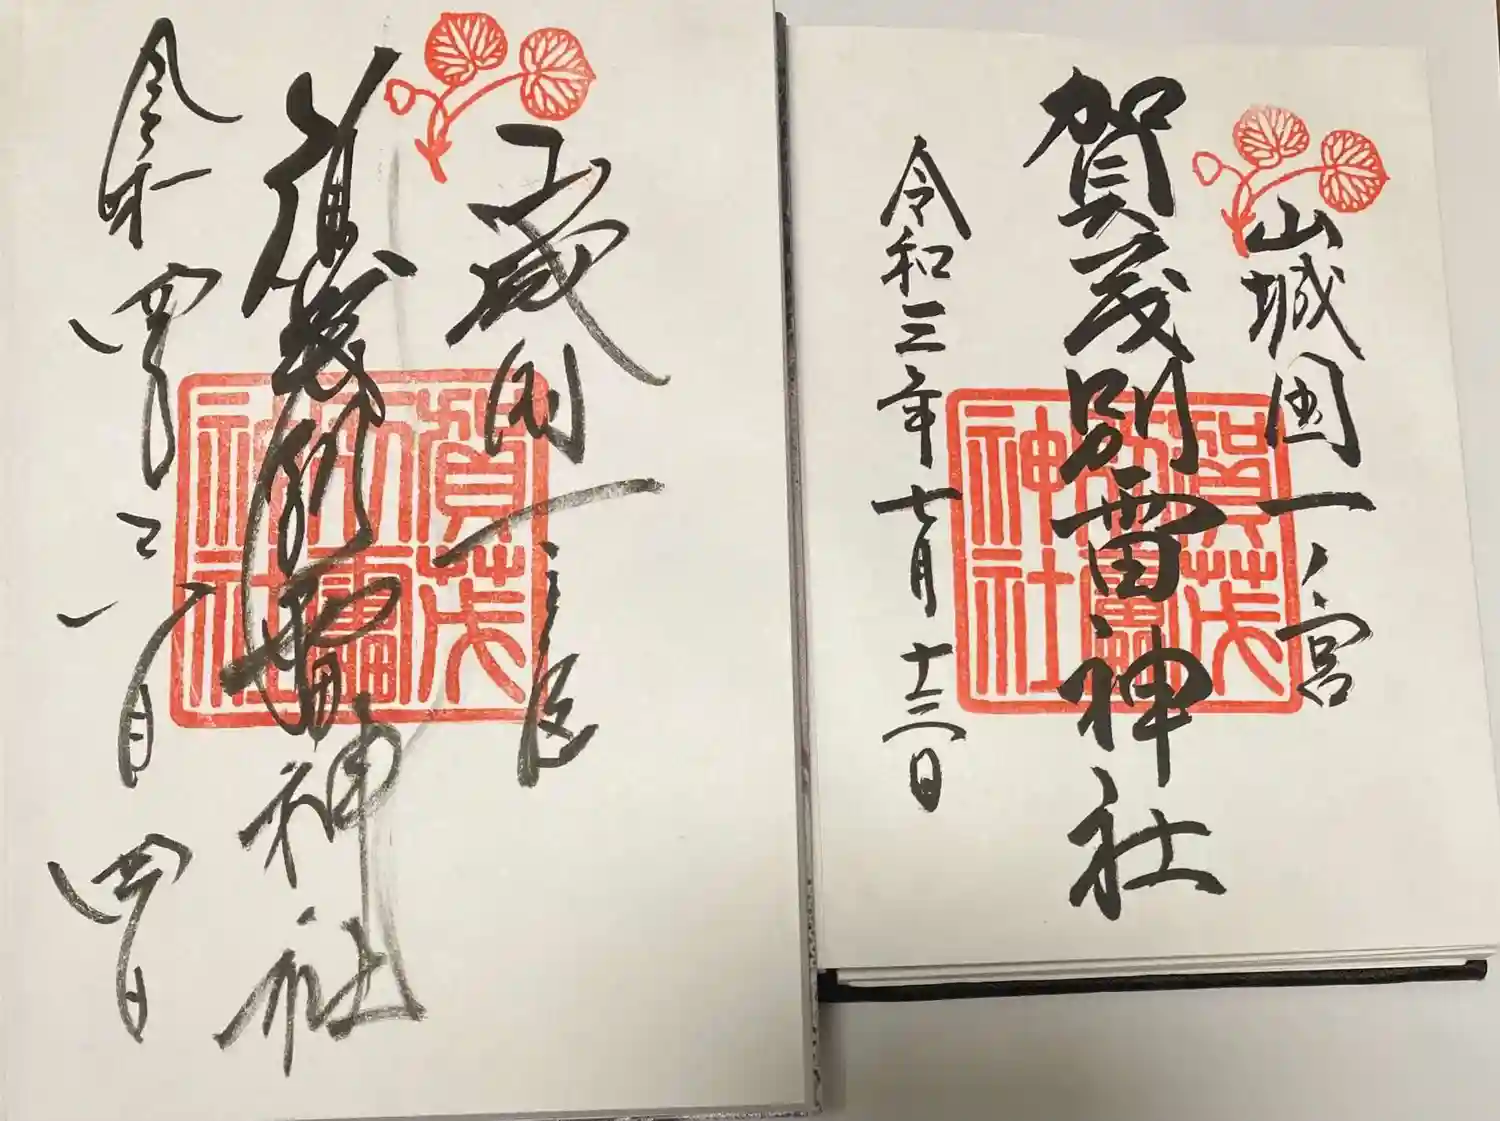 山城国一ノ宮
賀茂別雷神社
賀茂別雷神社
令和三年七月十三日
山城国一之宮
賀茂別雷神社
賀茂別雷神社
令和四年 月四日